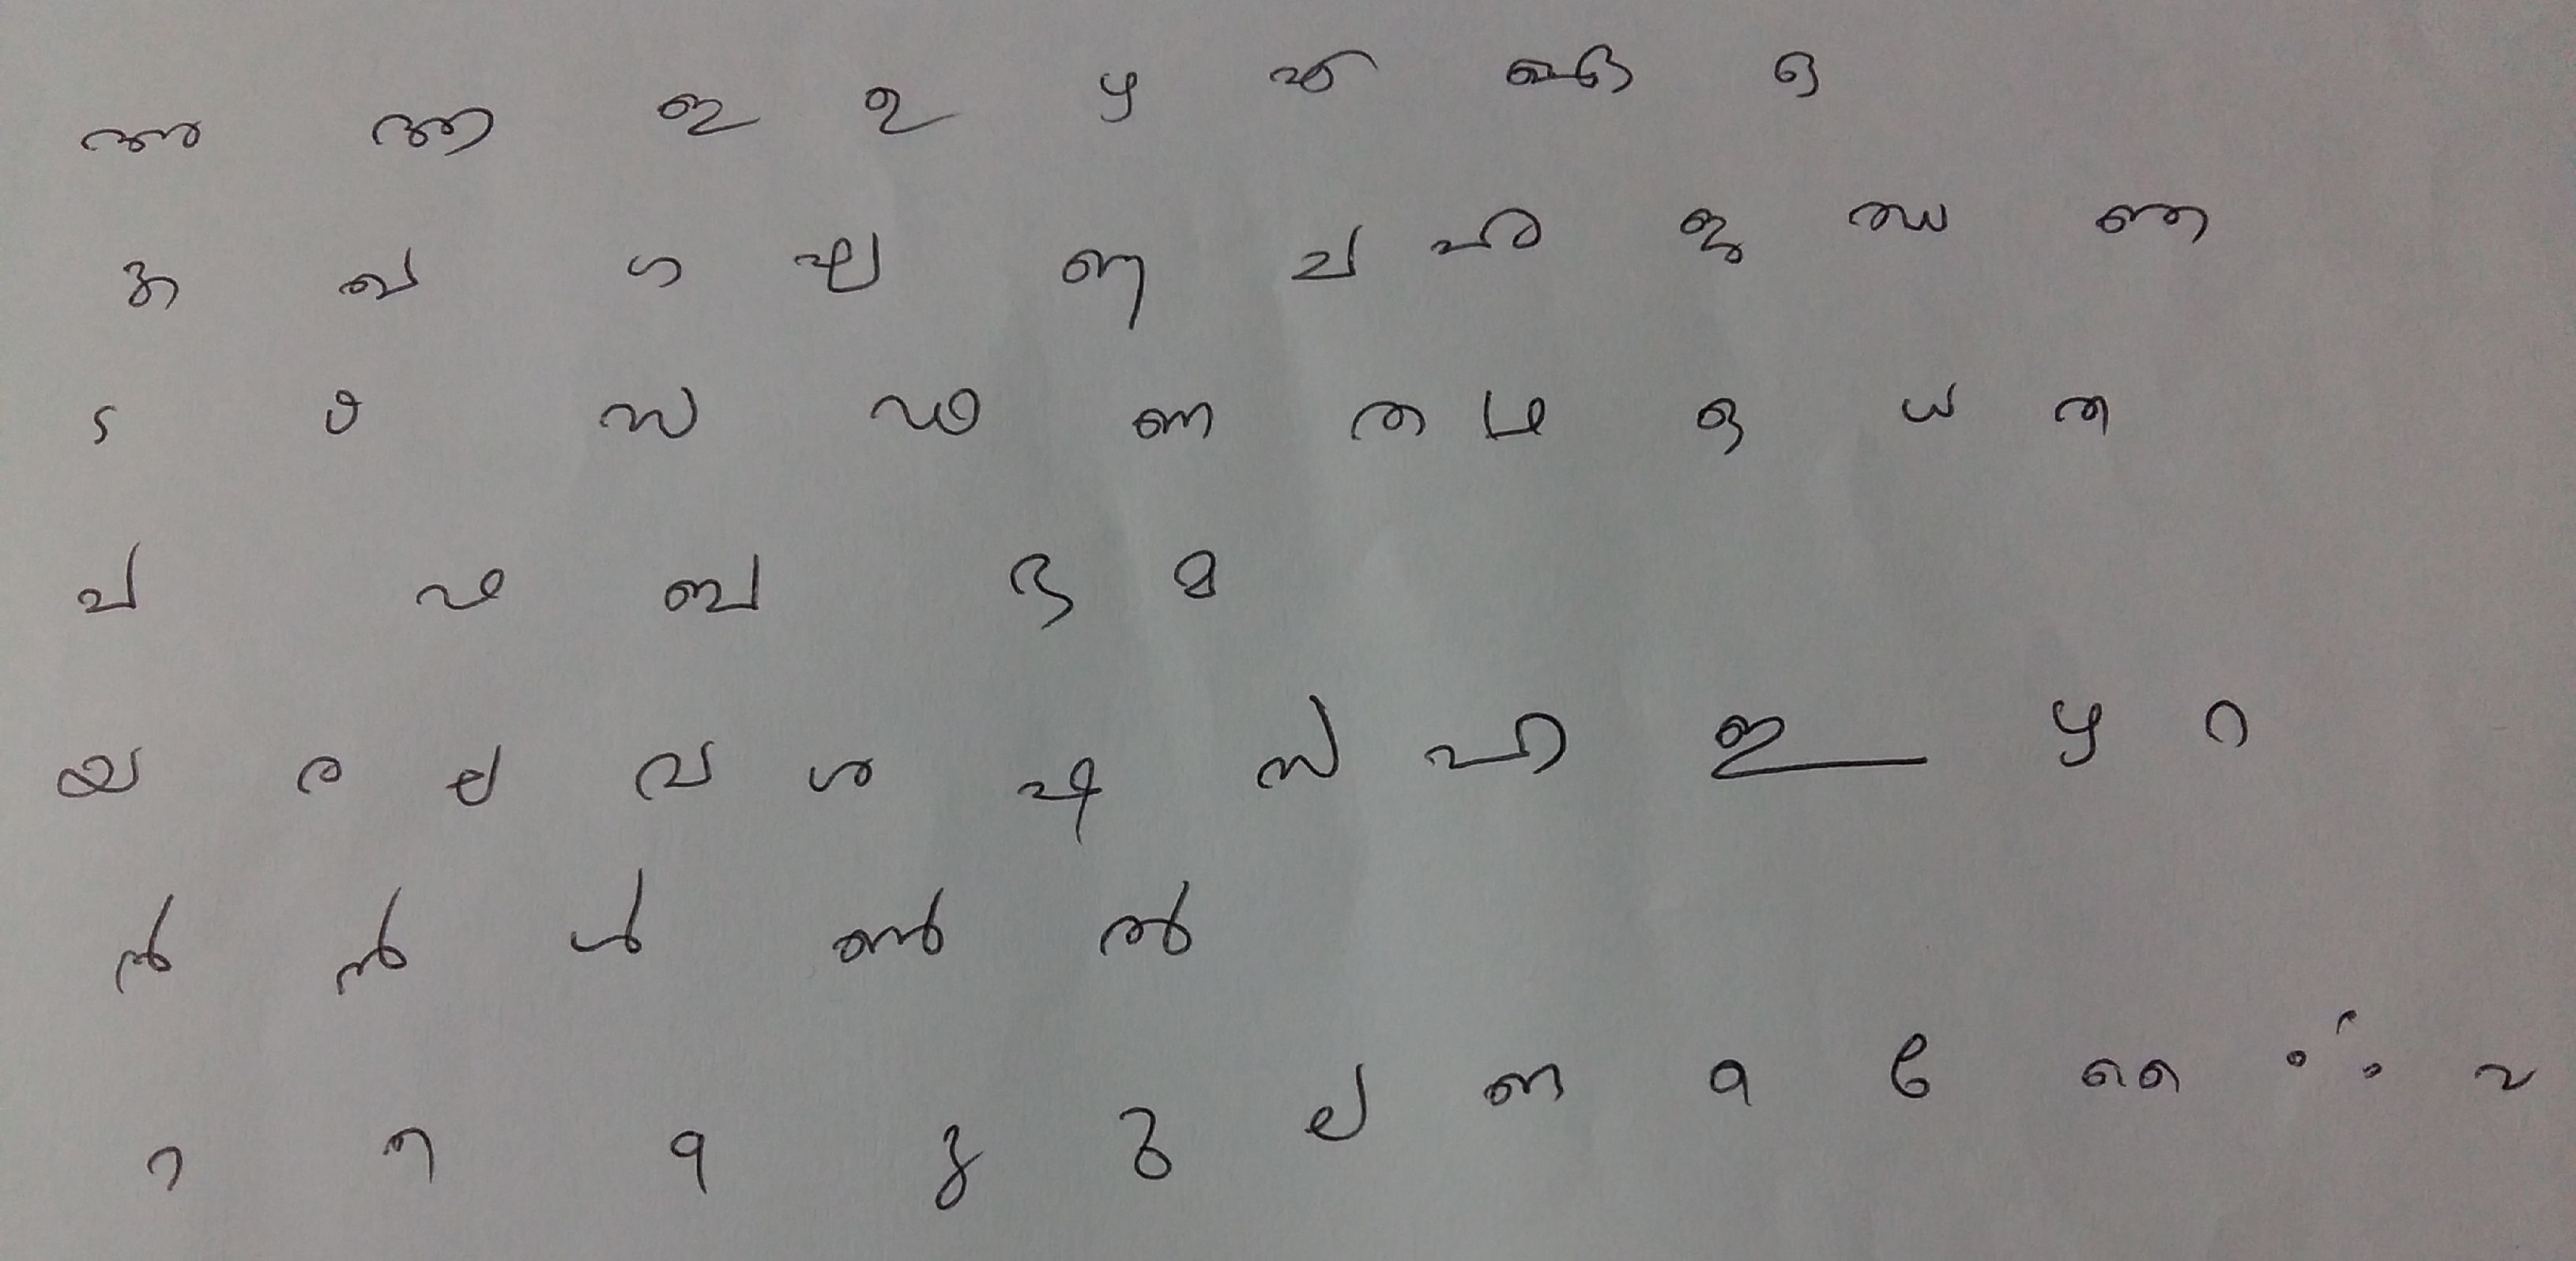 അ ആ ഇ ഉ ഋ എ ഏ ഒ
ക ഖ ഗ ഘ ങ ച ഛ ജ ഝ ഞ
ട ഠ ഡ ഢ ണ ത ഥ ദ ധ ന
പ ഫ ബ ഭ മ
യ ര ല വ ശ ഷ സ ഹ ള ഴ റ
ൻ ൾ ൺ ൽ
ാ ി ു ൂ ൃ െ േ ൈ ം ഃ